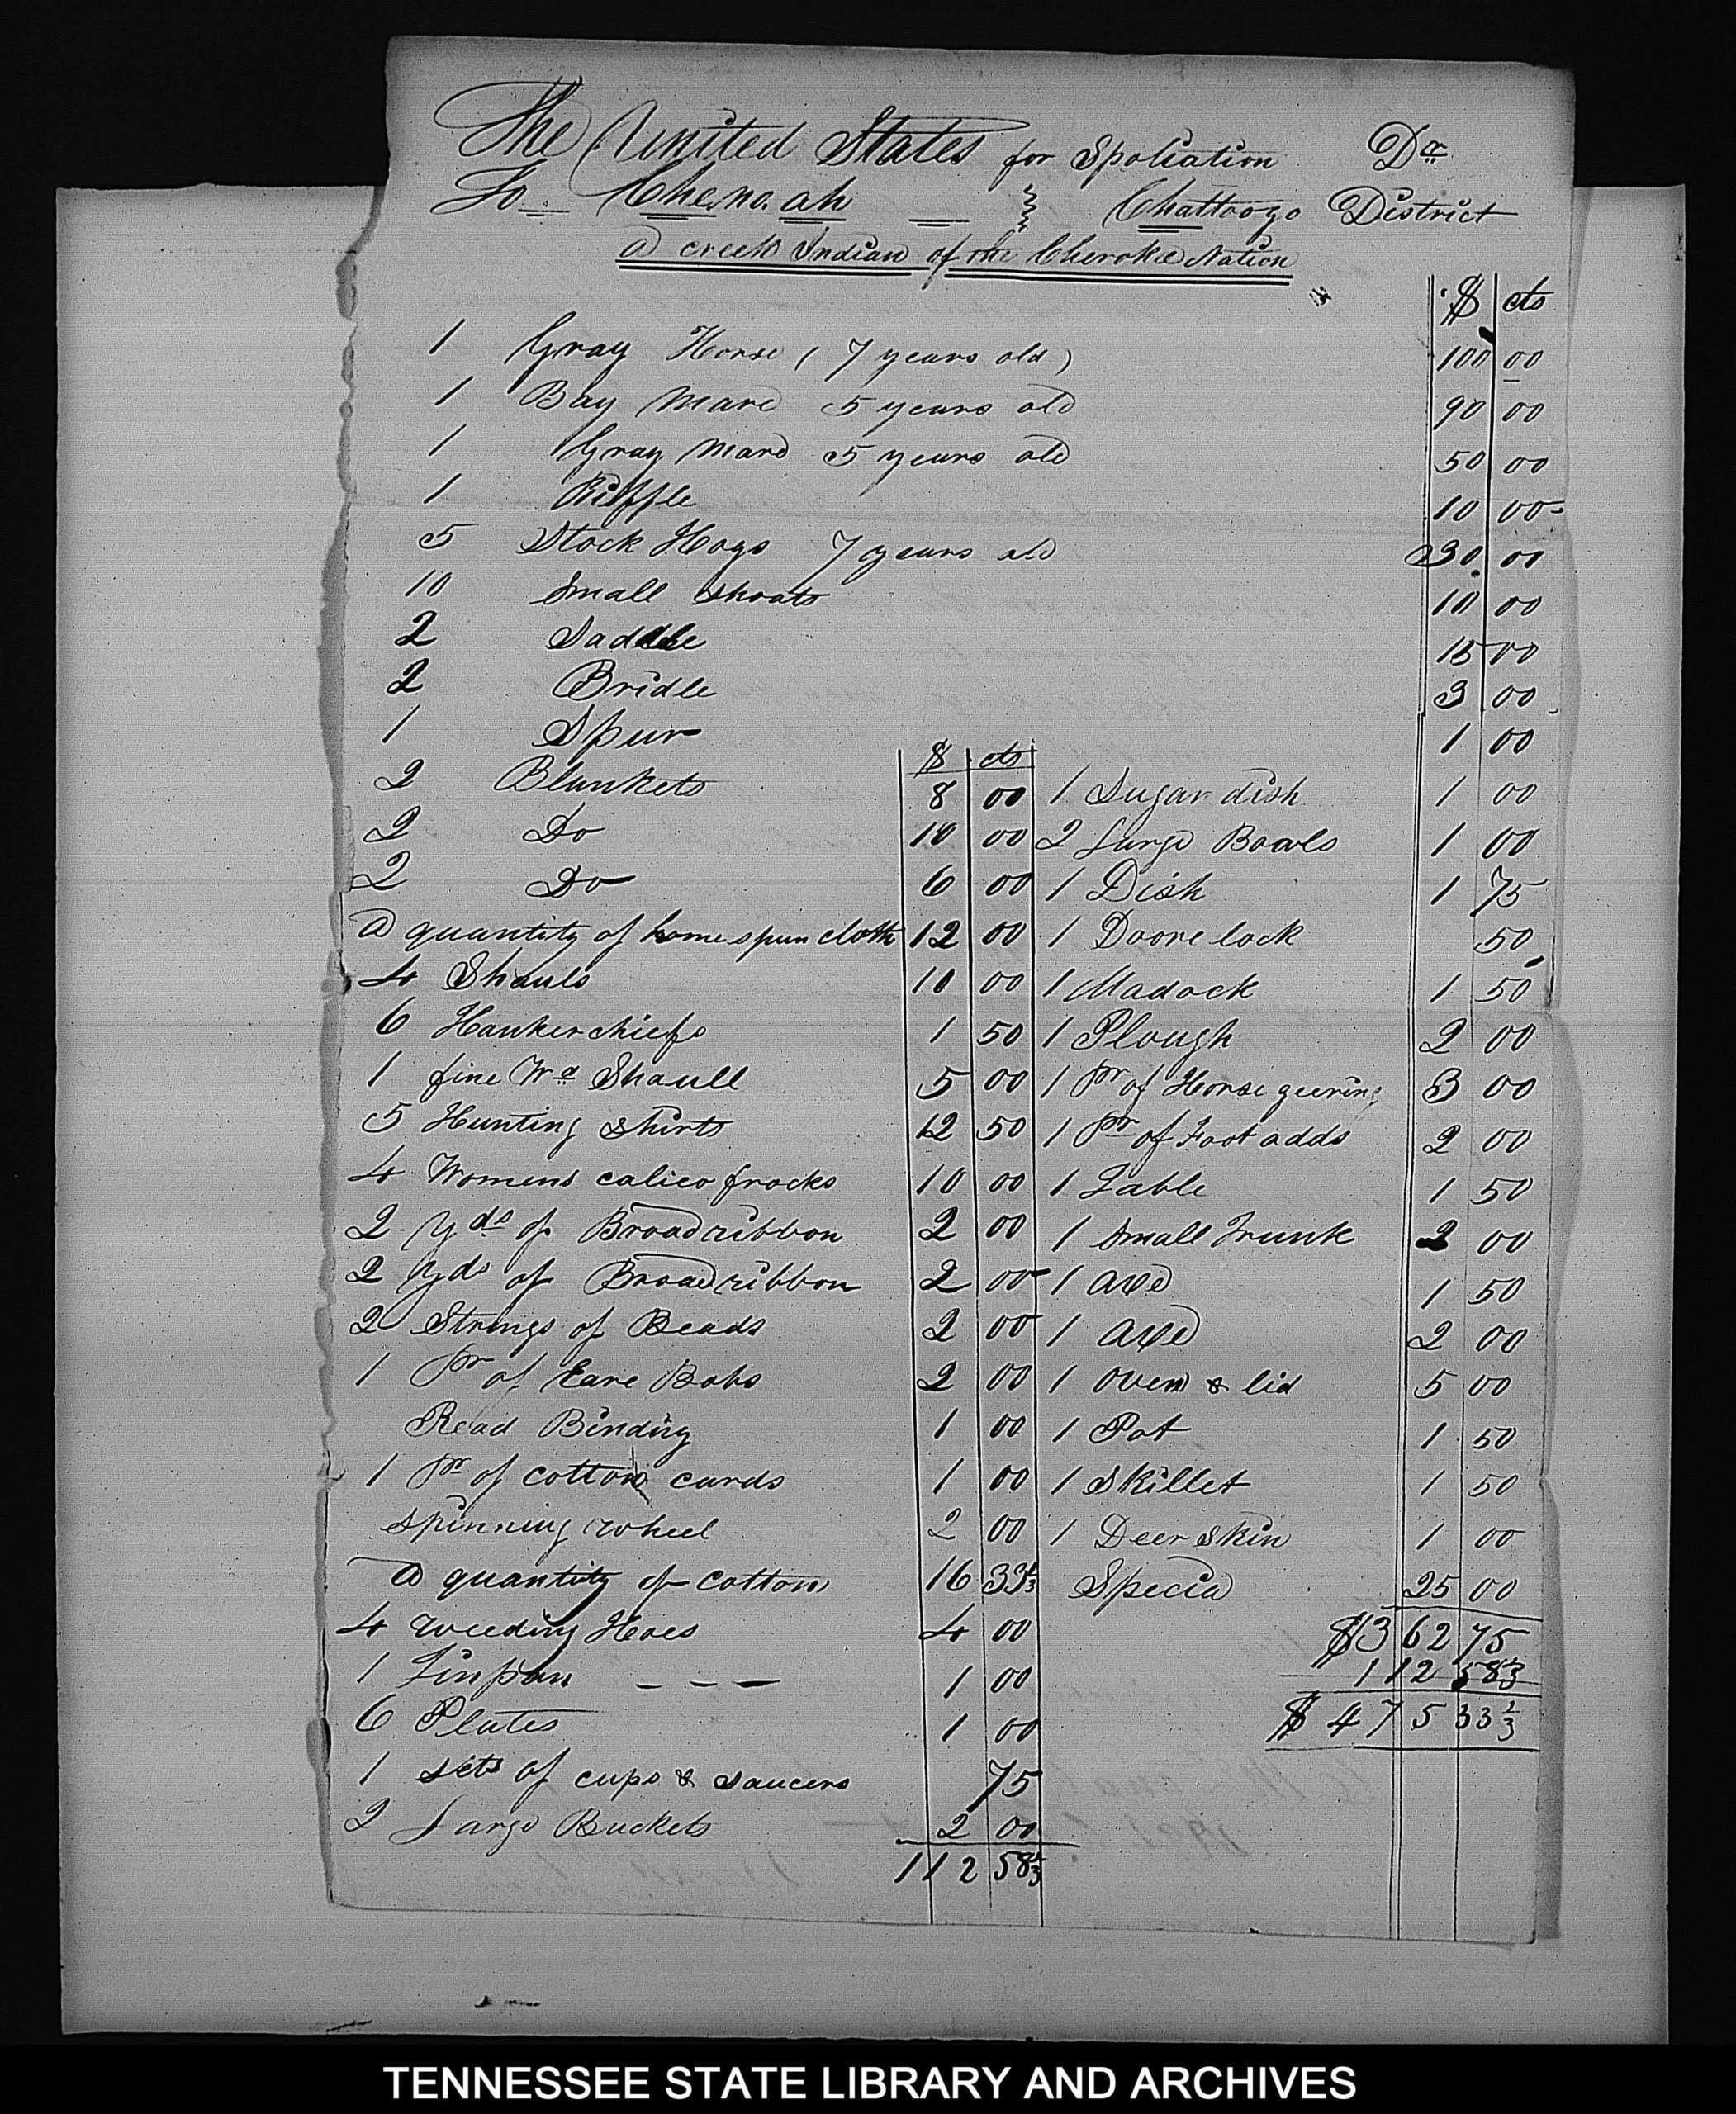 The United States for Spoliation Dr
To Che.no.ah Chattoogo District
a creek Indian of the Cherokee Nation
$ cts
1 Gray Horse ( 7 years old ) 100 00
1 Bay Mare 5 years old 90 00
1 Gray Mare 5 years old 50 00
1 Riffle 10 00
5 Stock Hogs 7 years old 30 00
10 Small Shoats 10 00
2 Saddle 15 00
2 Bridle 3 00
1 Spur 1 00
$ cts
2 Blankets 8 00 1 Sugar dish 1 00
2 Do 10 00 2 Large Bowls 1 00
2 Do 6 00 1 Dish 1 75
a quantity of homespun cloth 12 00 1 Doore lock 50
4 Shauls 10 00 1 Madock 1 50
6 Hankerchiefs 1 50 1 Plough 2 00
1 fine Wd Shaull 5 00 1 Pr of Horse geering 3 00
5 Hunting Shirts 12 50 1 Pr of Foot adds 2 00
4 Womens calico frocks 10 00 1 Table 1 50
2 Yds of Broad ribbon 2 00 1 Small Trunk 2 00
2 Yds of Broad ribbon 2 00 1 axe 1 50
2 Strings of Beads 2 00 1 axe 2 00
1 Pr of Eare Bobs 2 00 1 oven & lid 5 00
Read Binding 1 00 1 Pot 1 50
1 Pr of cotton cards 1 00 1 Skillet 1 50
spinning wheel 2 00 1 Deer skin 1 00
a quantity of cotton 16 33⅓ Specia 25 00
4 weeding Hoes 4 00 $362 75
1 Tinpan - - - 1 00 112 58⅓
6 Plates 1 00 $475 33⅓
1 sets of cups & saucers 75
2 Large Buckets 2 00
112 58⅓
TENNESSEE STATE LIBRARY AND ARCHIVES